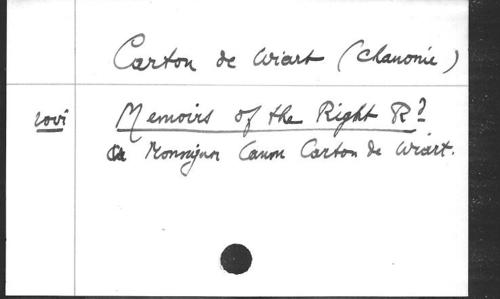 Carton de Wiart (Chanonie)
xovi Memoirs of the Right R?
Monsignor Canon Carton de Wiart.